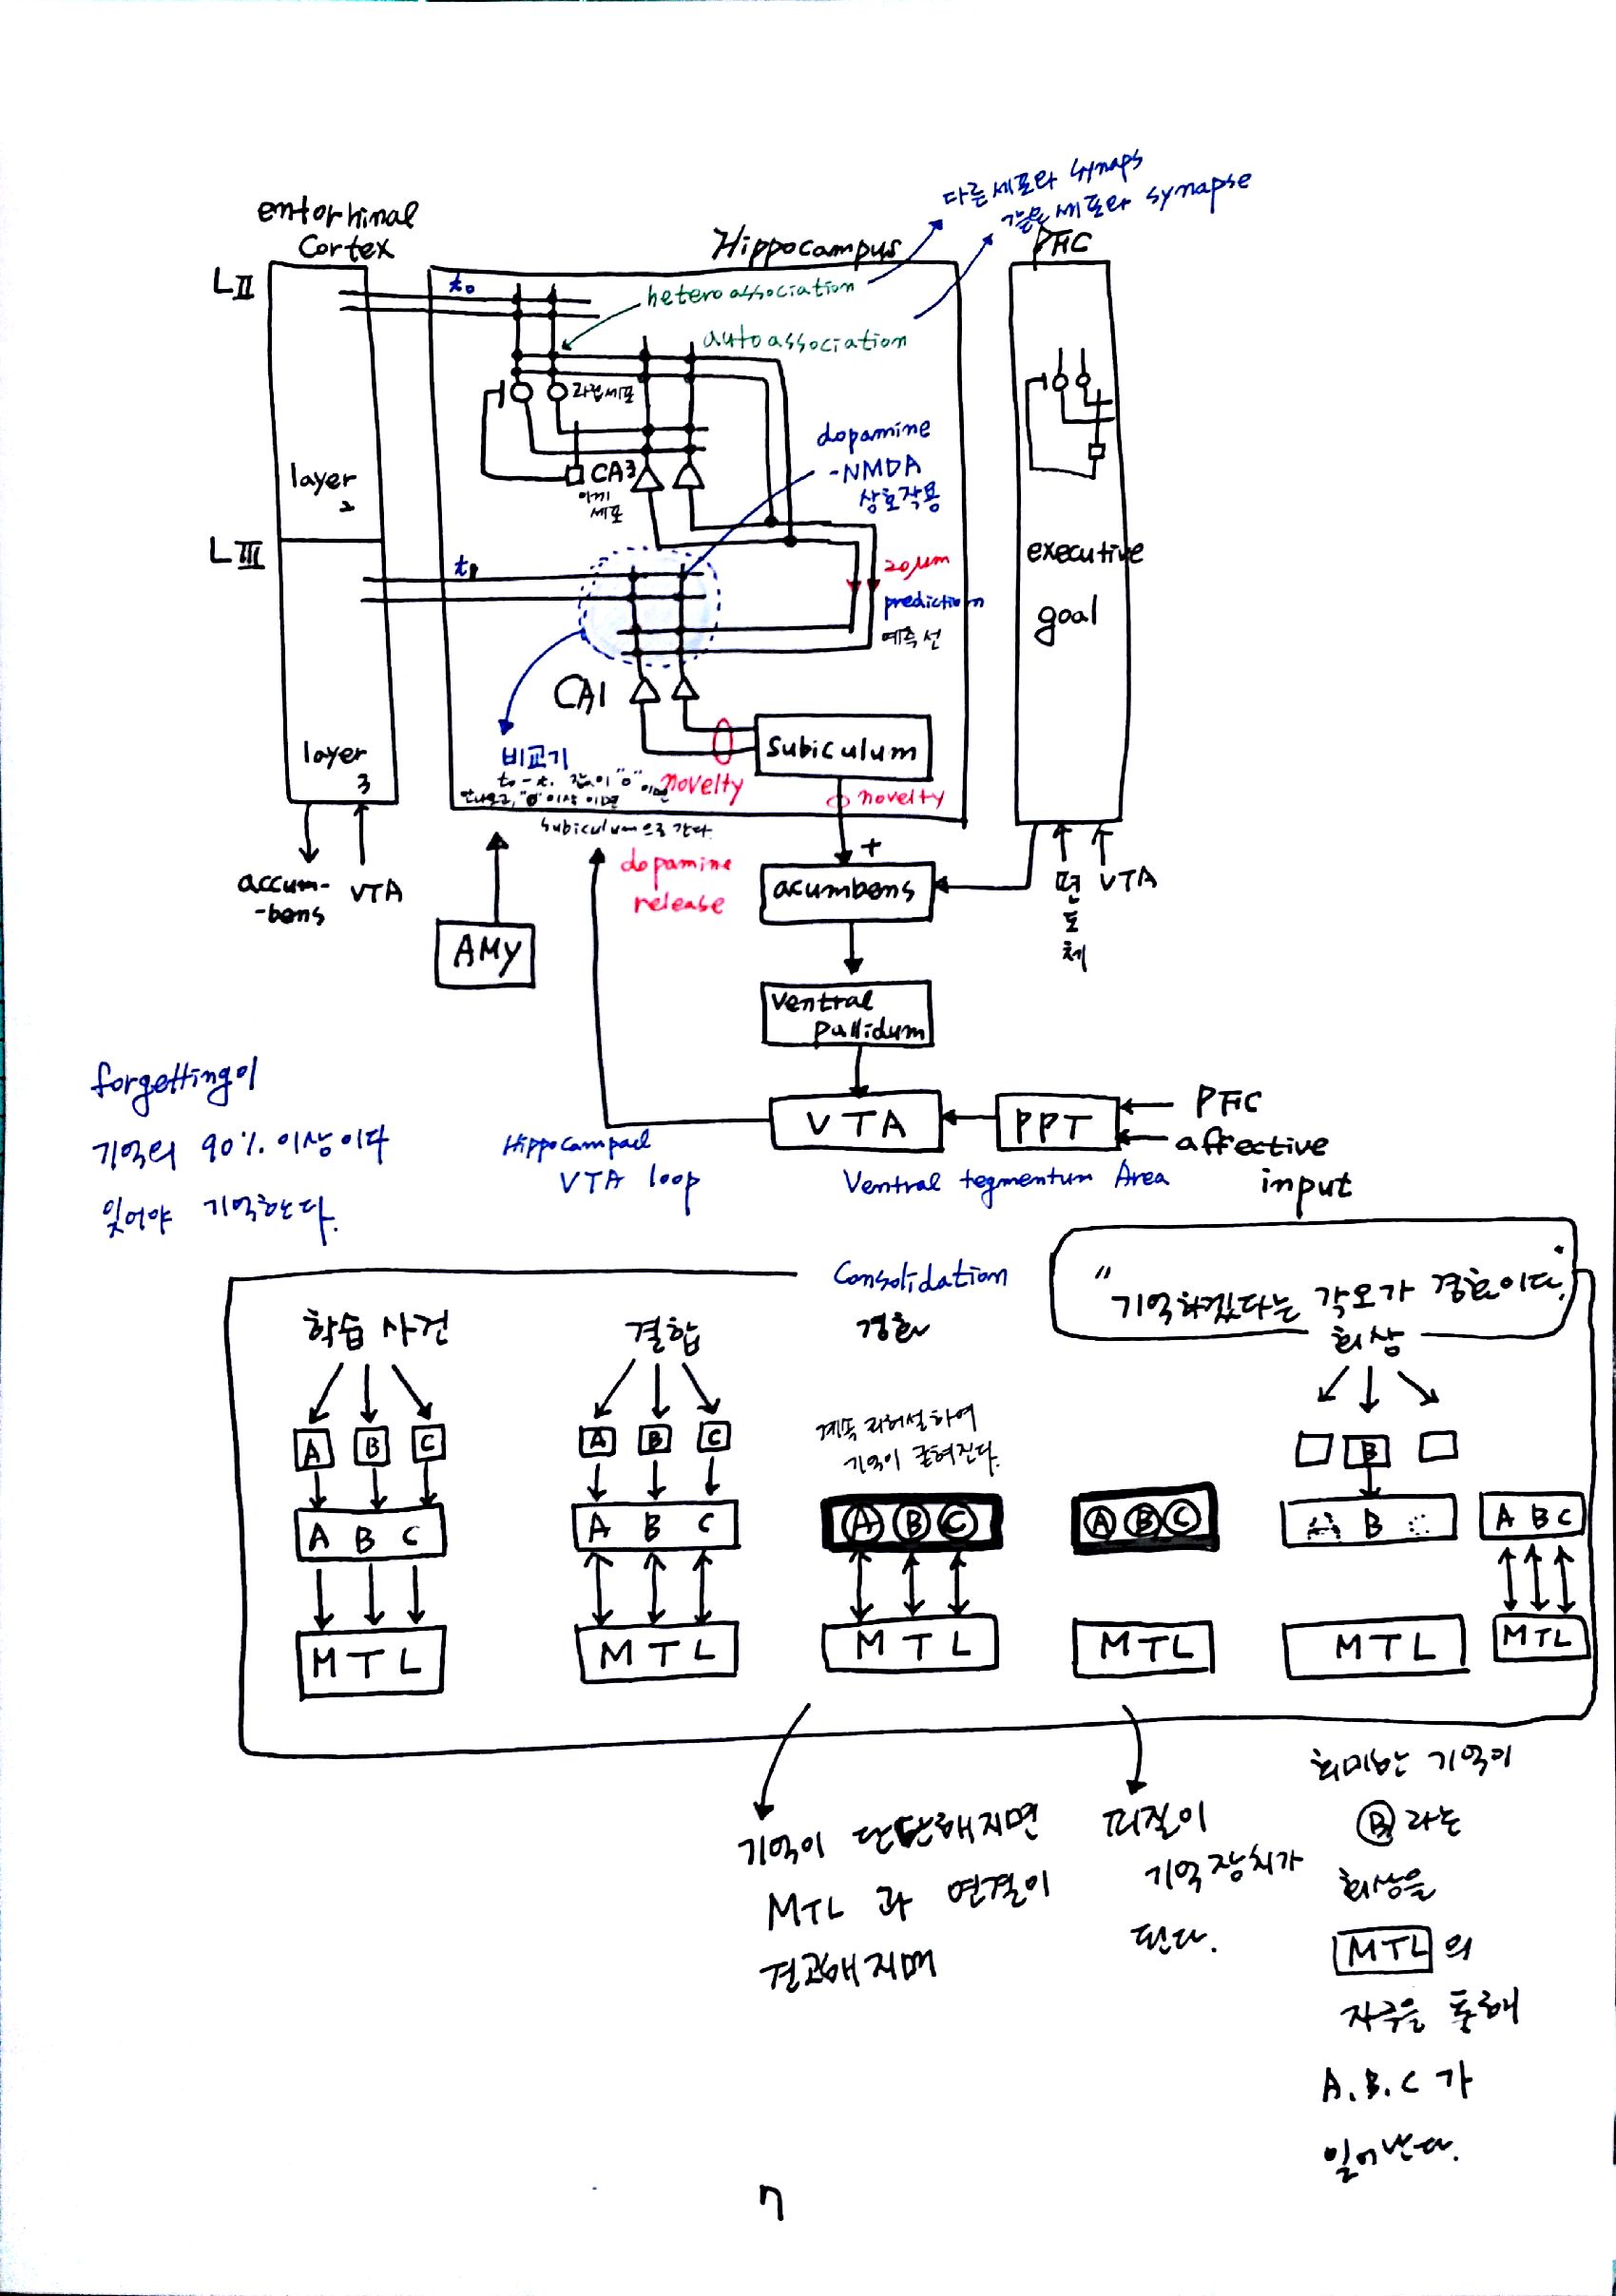 entorhinal
Cortex
Hippocampus
다른 세포와 synaps
같은 세포와 synapse
PFC
LII
t₀
heteroassociation
autoassociation
과립세포
dopamine
-NMDA
상호작용
layer
2
CA3
이끼
세포
LIII
t₁
20μm
prediction
예측선
executive
goal
CA1
layer
3
비교기
t₀-t₁ 값이 "0"이면
안나오고, "0"이상이면
subiculum으로 간다.
Subiculum
novelty
novelty
+
accum-
-bens
VTA
AMY
dopamine
release
acumbens
편도체
VTA
Ventral
Pallidum
VTA
PPT
PFC
affective
input
Hippocampal
VTA loop
Ventral tegmentum Area
forgetting이
기억의 90% 이상이다
잊어야 기억한다.
Consolidation
경화
"기억하겠다는 각오가 경화이다."
학습 사건
결합
회상
A B C
A B C
계속 재허설하여
기억이 굳혀진다.
B
A B C
A B C
A B C
A B C
A B C
A B C
MTL
MTL
MTL
MTL
MTL
MTL
기억이 단단해지면
MTL 과 연결이
견고해지며
피질이
기억장치가
된다.
희미한 기억이
B 라는
회상을
MTL 의
자극을 통해
A.B.C 가
일어난다.
7